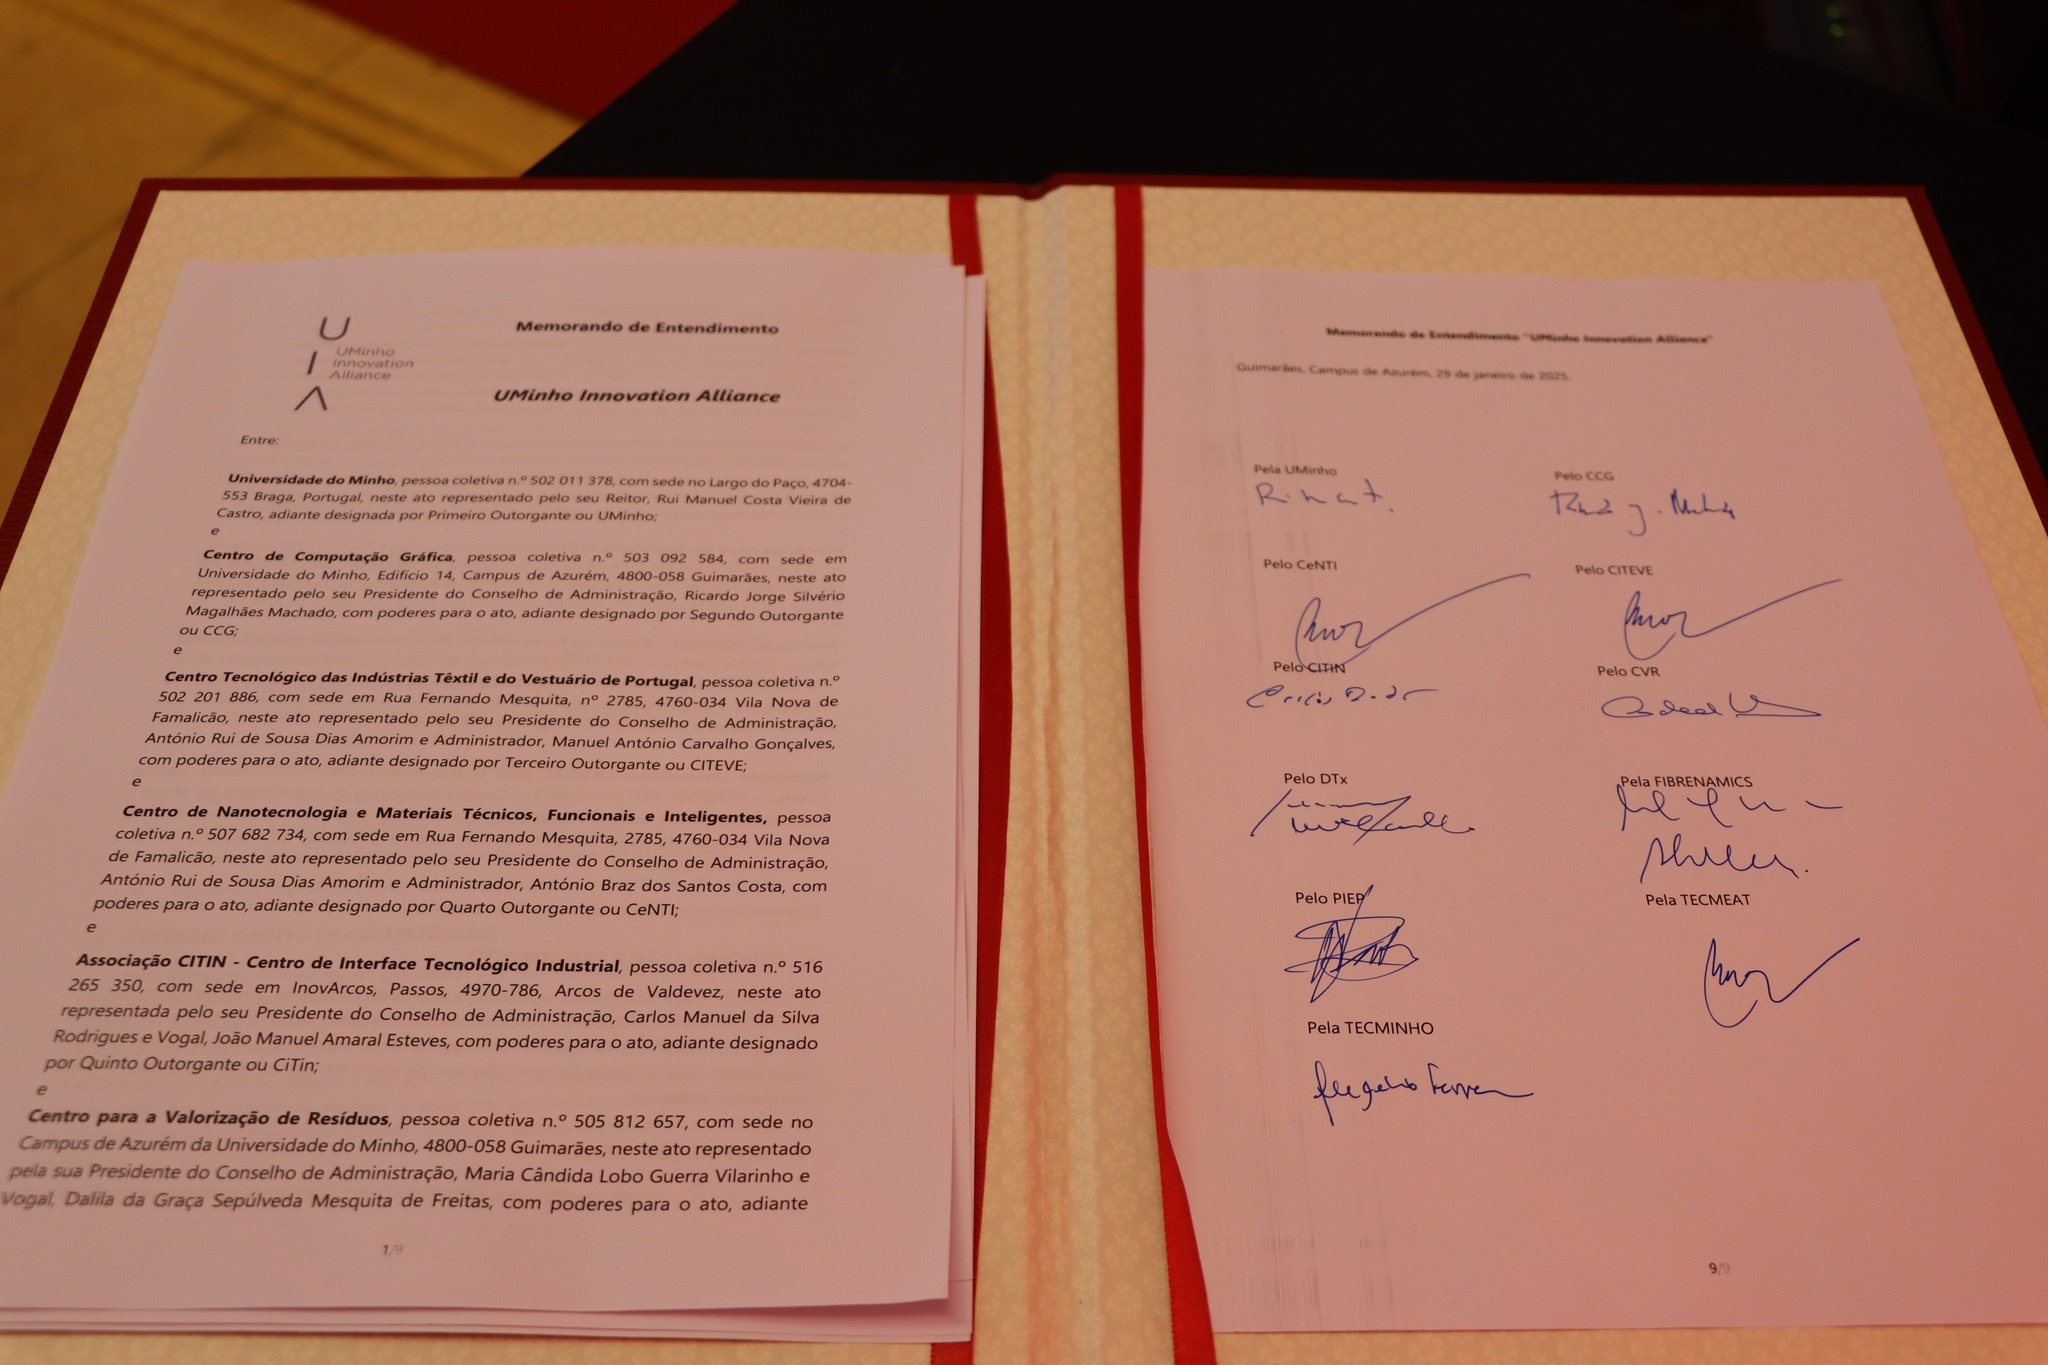 U
I UMinho
Innovation
Alliance
Λ
Memorando de Entendimento
UMinho Innovation Alliance
Entre:
Universidade do Minho, pessoa coletiva n.º 502 011 378, com sede no Largo do Paço, 4704-
553 Braga, Portugal, neste ato representado pelo seu Reitor, Rui Manuel Costa Vieira de
Castro, adiante designada por Primeiro Outorgante ou UMinho;
e
Centro de Computação Gráfica, pessoa coletiva n.º 503 092 584, com sede em
Universidade do Minho, Edifício 14, Campus de Azurém, 4800-058 Guimarães, neste ato
representado pelo seu Presidente do Conselho de Administração, Ricardo Jorge Silvério
Magalhães Machado, com poderes para o ato, adiante designado por Segundo Outorgante
ou CCG;
e
Centro Tecnológico das Indústrias Têxtil e do Vestuário de Portugal, pessoa coletiva n.º
502 201 886, com sede em Rua Fernando Mesquita, nº 2785, 4760-034 Vila Nova de
Famalicão, neste ato representado pelo seu Presidente do Conselho de Administração,
António Rui de Sousa Dias Amorim e Administrador, Manuel António Carvalho Gonçalves,
com poderes para o ato, adiante designado por Terceiro Outorgante ou CITEVE;
e
Centro de Nanotecnologia e Materiais Técnicos, Funcionais e Inteligentes, pessoa
coletiva n.º 507 682 734, com sede em Rua Fernando Mesquita, 2785, 4760-034 Vila Nova
de Famalicão, neste ato representado pelo seu Presidente do Conselho de Administração,
António Rui de Sousa Dias Amorim e Administrador, António Braz dos Santos Costa, com
poderes para o ato, adiante designado por Quarto Outorgante ou CeNTI;
e
Associação CITIN - Centro de Interface Tecnológico Industrial, pessoa coletiva n.º 516
265 350, com sede em InovArcos, Passos, 4970-786, Arcos de Valdevez, neste ato
representada pelo seu Presidente do Conselho de Administração, Carlos Manuel da Silva
Rodrigues e Vogal, João Manuel Amaral Esteves, com poderes para o ato, adiante designado
por Quinto Outorgante ou CiTin;
e
Centro para a Valorização de Resíduos, pessoa coletiva n.º 505 812 657, com sede no
Campus de Azurém da Universidade do Minho, 4800-058 Guimarães, neste ato representado
pela sua Presidente do Conselho de Administração, Maria Cândida Lobo Guerra Vilarinho e
Vogal, Dalila da Graça Sepúlveda Mesquita de Freitas, com poderes para o ato, adiante
1/9
Memorando de Entendimento "UMinho Innovation Alliance"
Guimarães, Campus de Azurém, 29 de janeiro de 2025.
Pela UMinho
Pelo CCG
Pelo CeNTI
Pelo CITEVE
Pelo CITIN
Pelo CVR
Pelo DTx
Pela FIBRENAMICS
Pelo PIEP
Pela TECMEAT
Pela TECMINHO
9/9